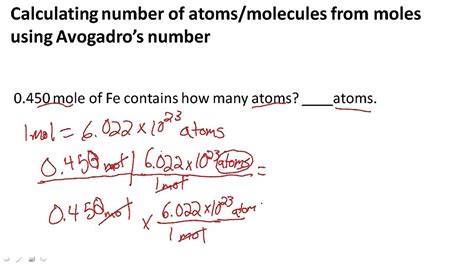 Calculating number of atoms/molecules from moles
using Avogadro's number
0.450 mole of Fe contains how many atoms? ____atoms.
1mol = 6.022 × 10^23 atoms
0.450 mol | 6.022 × 10^23 atoms =
1 mol
0.450 mol × 6.022 × 10^23 atom
1 mol